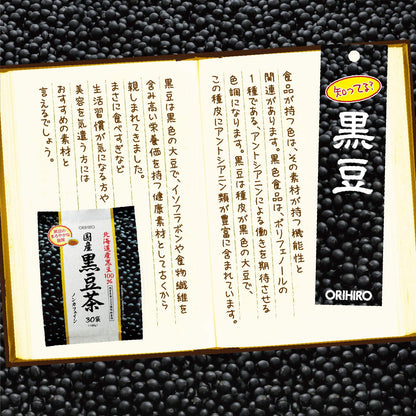 知ってる?
黒豆
ORIHIRO
食品が持つ色は、その素材が持つ機能性と
関連があります。黒色食品は、ポリフェノールの
1種である、アントシアニンによる働きを期待させる
色調になります。黒豆は種皮が黒色の大豆で、
この種皮にアントシアニン類が豊富に含まれています。
黒豆は黒色の大豆で、イソフラボンや食物繊維を
含み高い栄養価を持つ健康素材として古くから
親しまれてきました。
まさに食べすぎなど
生活習慣が気になる方や
美容を気遣う方には
おすすめの素材と
言えるでしょう。
ORIHIRO
北海道産黒豆
100%
国産
黒豆茶
ノンカフェイン
30袋